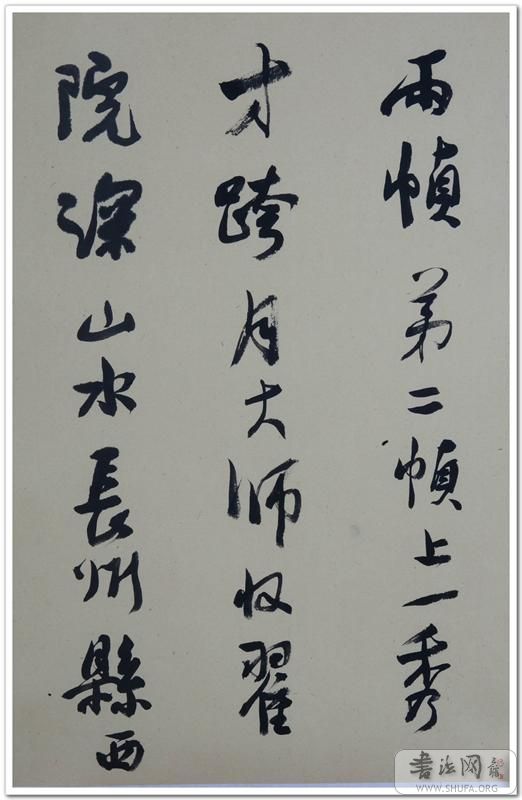 兩幀第二幀上一秀
才跨月大師收翟
院深山水長州縣西
書法网
WWW.SHUFA.ORG